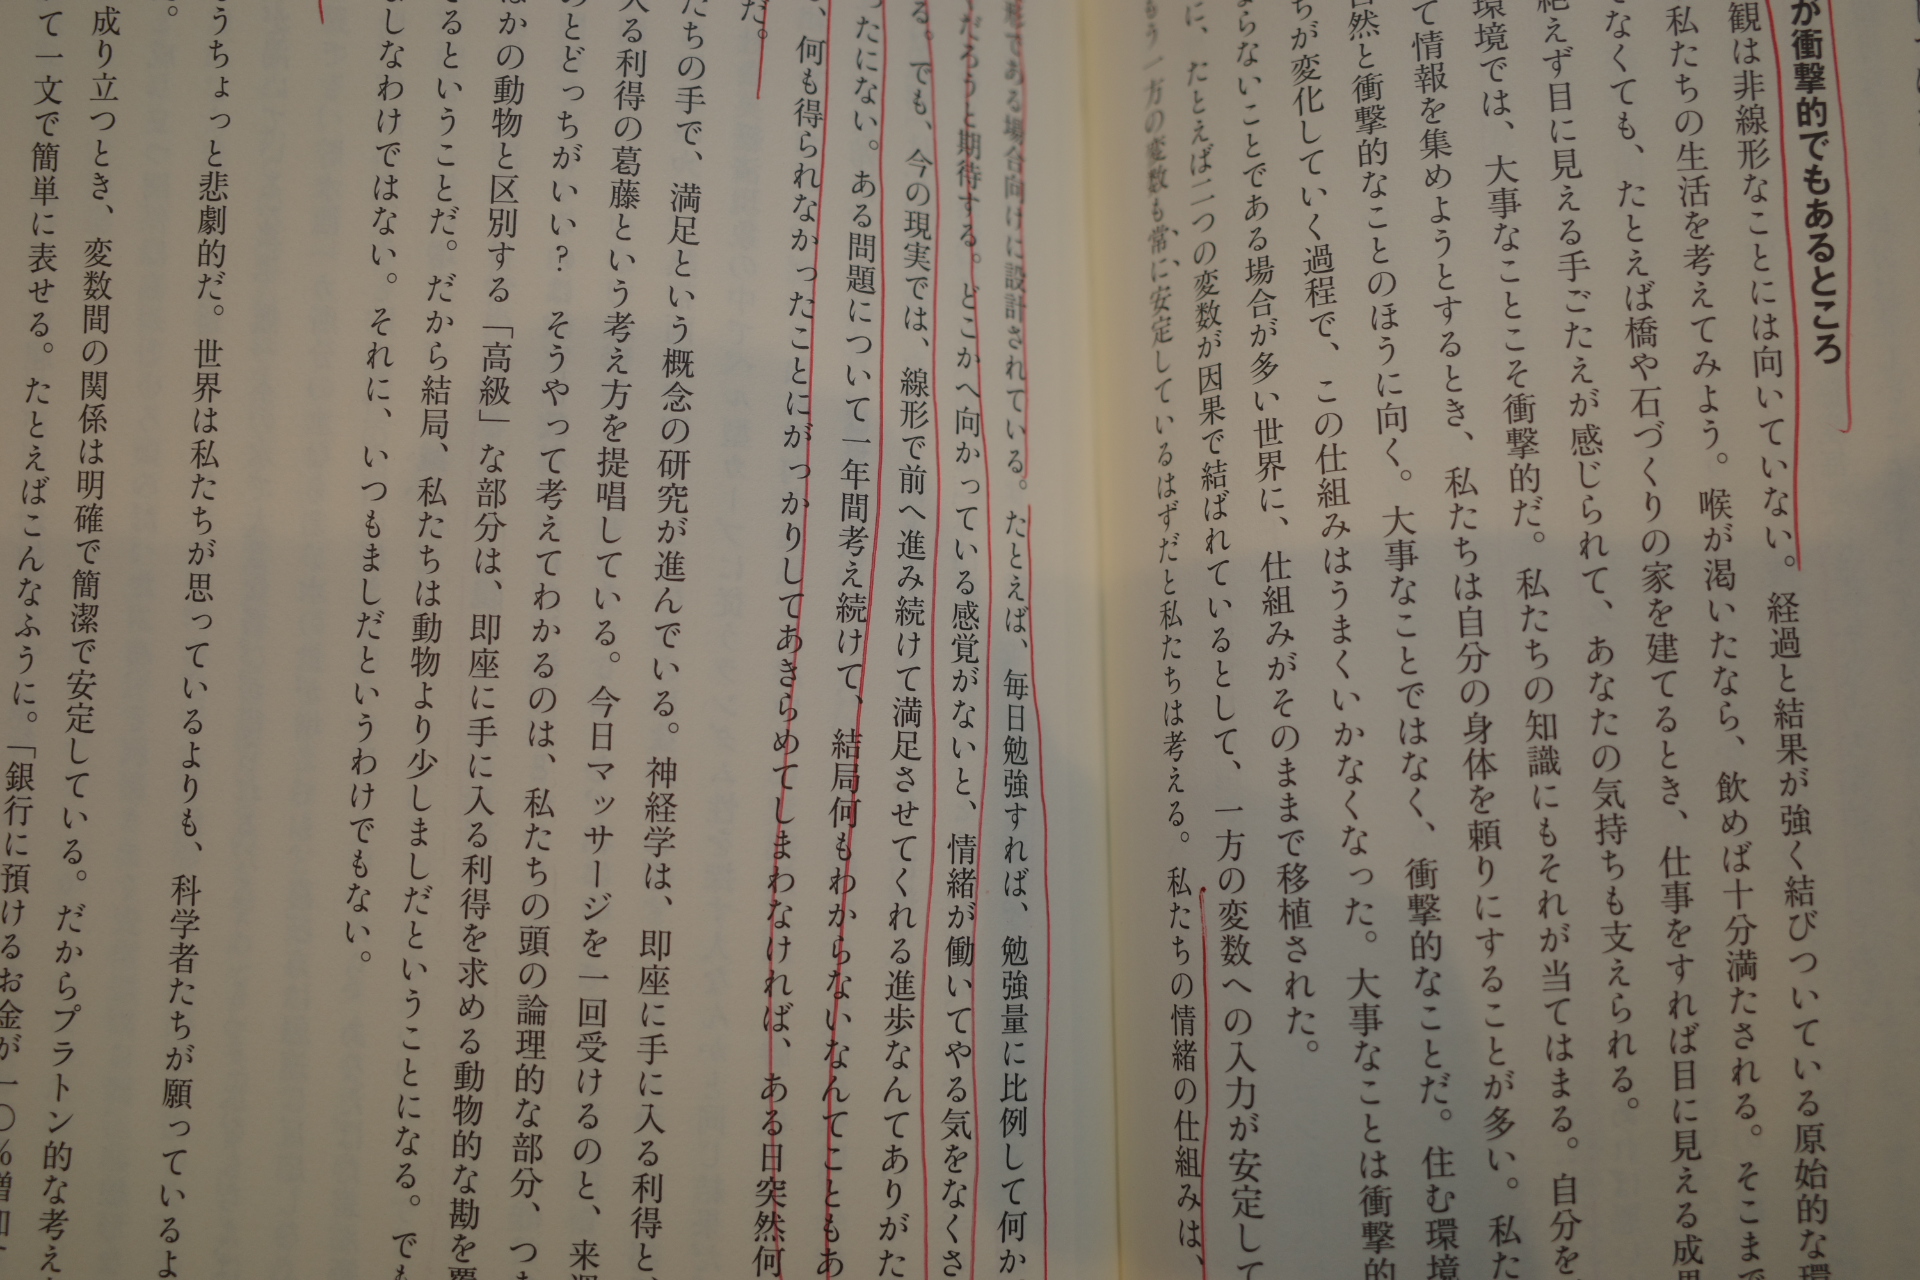 が衝撃的でもあるところ
観は非線形なことには向いていない。経過と結果が強く結びついている原始的な環
私たちの生活を考えてみよう。喉が渇いたなら、飲めば十分満たされる。そこまで
なくても、たとえば橋や石づくりの家を建てるとき、仕事をすれば目に見える成果
絶えず目に見える手ごたえが感じられて、あなたの気持ちも支えられる。
環境では、大事なことこそ衝撃的だ。私たちの知識にもそれが当てはまる。自分を
て情報を集めようとするとき、私たちは自分の身体を頼りにすることが多い。私た
自然と衝撃的なことのほうに向く。大事なことではなく、衝撃的なことだ。住む環境
ちが変化していく過程で、この仕組みはうまくいかなくなった。大事なことは衝撃的
らないことである場合が多い世界に、仕組みがそのままで移植された。
に、たとえば二つの変数が因果で結ばれているとして、一方の変数への入力が安定して
もう一方の変数も、常に安定しているはずだと私たちは考える。私たちの情緒の仕組みは、
である場合向けに設計されている。たとえば、毎日勉強すれば、勉強量に比例して何か
だろうと期待する。どこかへ向かっている感覚がないと、情緒が働いてやる気をなくさ
る。でも、今の現実では、線形で前へ進み続けて満足させてくれる進歩なんてありがた
ったにない。ある問題について一年間考え続けて、結局何もわからないなんてこともあ
、何も得られなかったことにがっかりしてあきらめてしまわなければ、ある日突然何
だ。
たちの手で、満足という概念の研究が進んでいる。神経学は、即座に手に入る利得と、
入る利得の葛藤という考え方を提唱している。今日マッサージを一回受けるのと、来週
のとどっちがいい？ そうやって考えてわかるのは、私たちの頭の論理的な部分、つま
ほかの動物と区別する「高級」な部分は、即座に手に入る利得を求める動物的な勘を覆
るということだ。だから結局、私たちは動物より少しましだということになる。でも
ましなわけではない。それに、いつもましだというわけでもない。
うちょっと悲劇的だ。世界は私たちが思っているよりも、科学者たちが願っているよ
。
成り立つとき、変数間の関係は明確で簡潔で安定している。だからプラトン的な考え
て一文で簡単に表せる。たとえばこんなふうに。「銀行に預けるお金が一〇％増加す